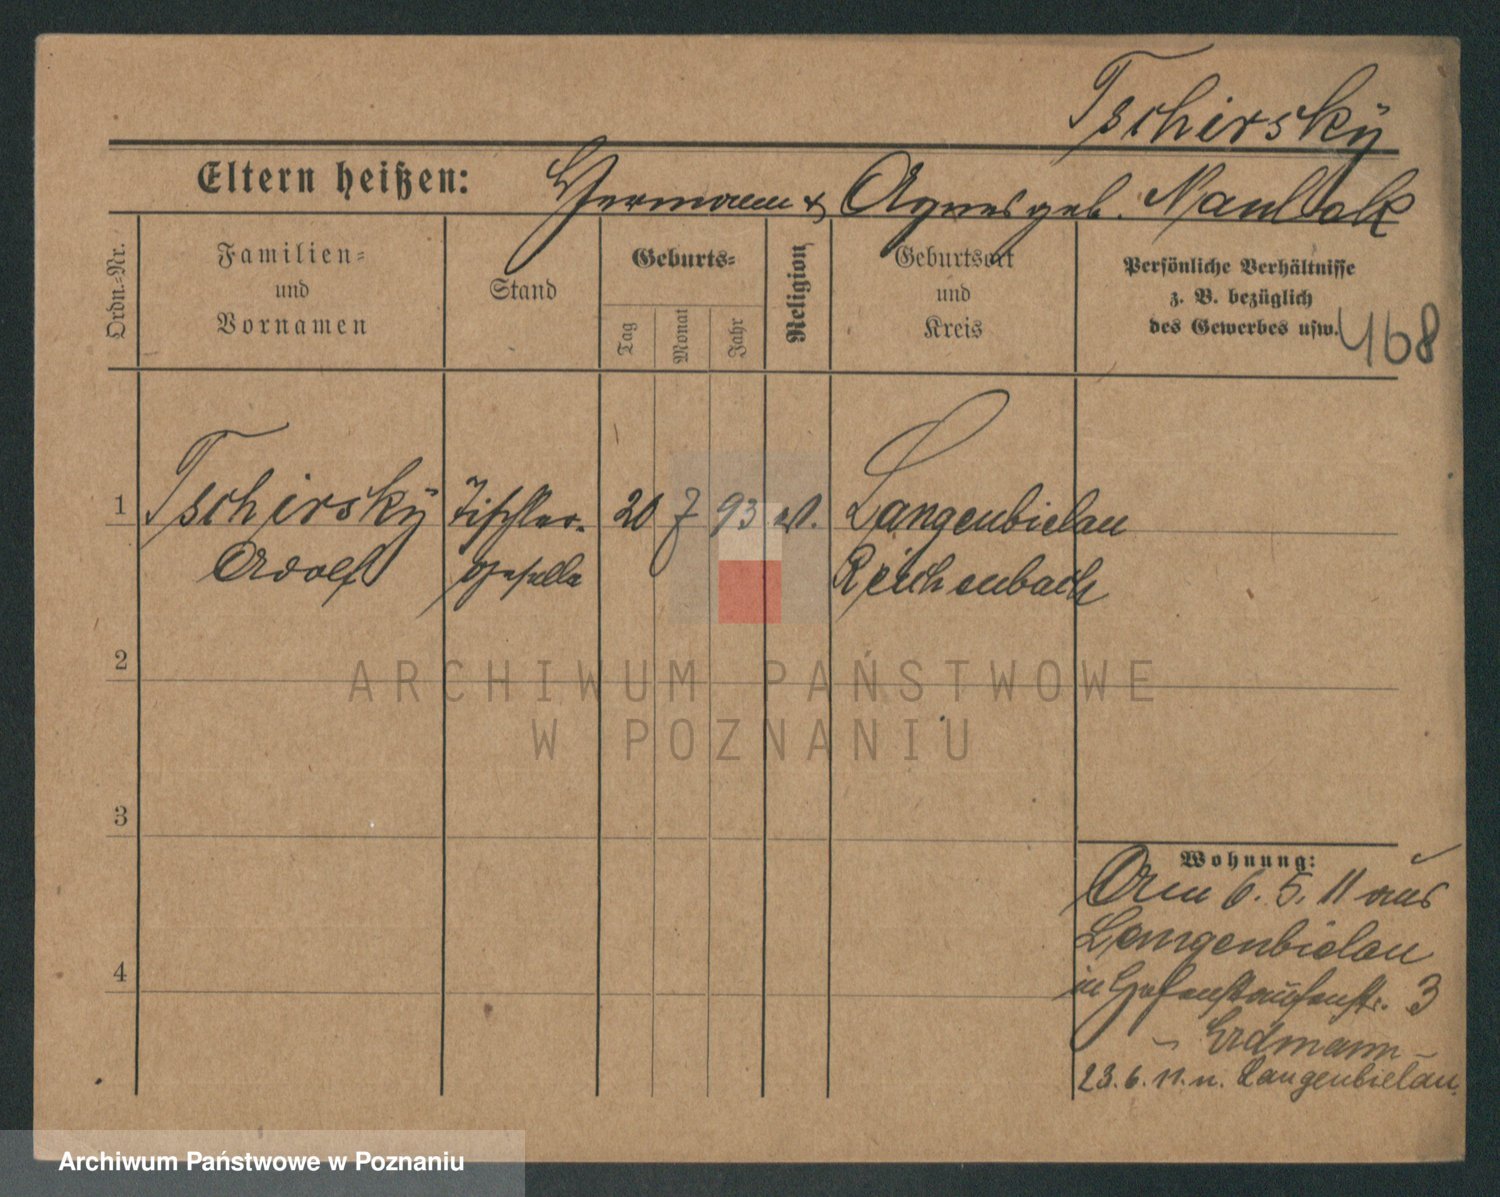 Tschirsky
Eltern heißen: Hermann & Agnes geb.
Ordn.=Nr.
Familien=
und
Vornamen
Stand
Geburts=
Tag
Monat
Jahr
Religion
Geburtsort
und
Kreis
Persönliche Verhältnisse
z. B. bezüglich
des Gewerbes usw.
468
1 Tschirsky Tischler- 20 7 93 ev. Langenbielau
Adolf geselle Reichenbach
2
3
4
Wohnung:
Am 6. 5. 11 aus
Langenbielau
in Hohenstaufenstr. 3
- Erdmann -
23. 6. 11. n. Langenbielau.
ARCHIWUM PAŃSTWOWE
W POZNANIU
Archiwum Państwowe w Poznaniu